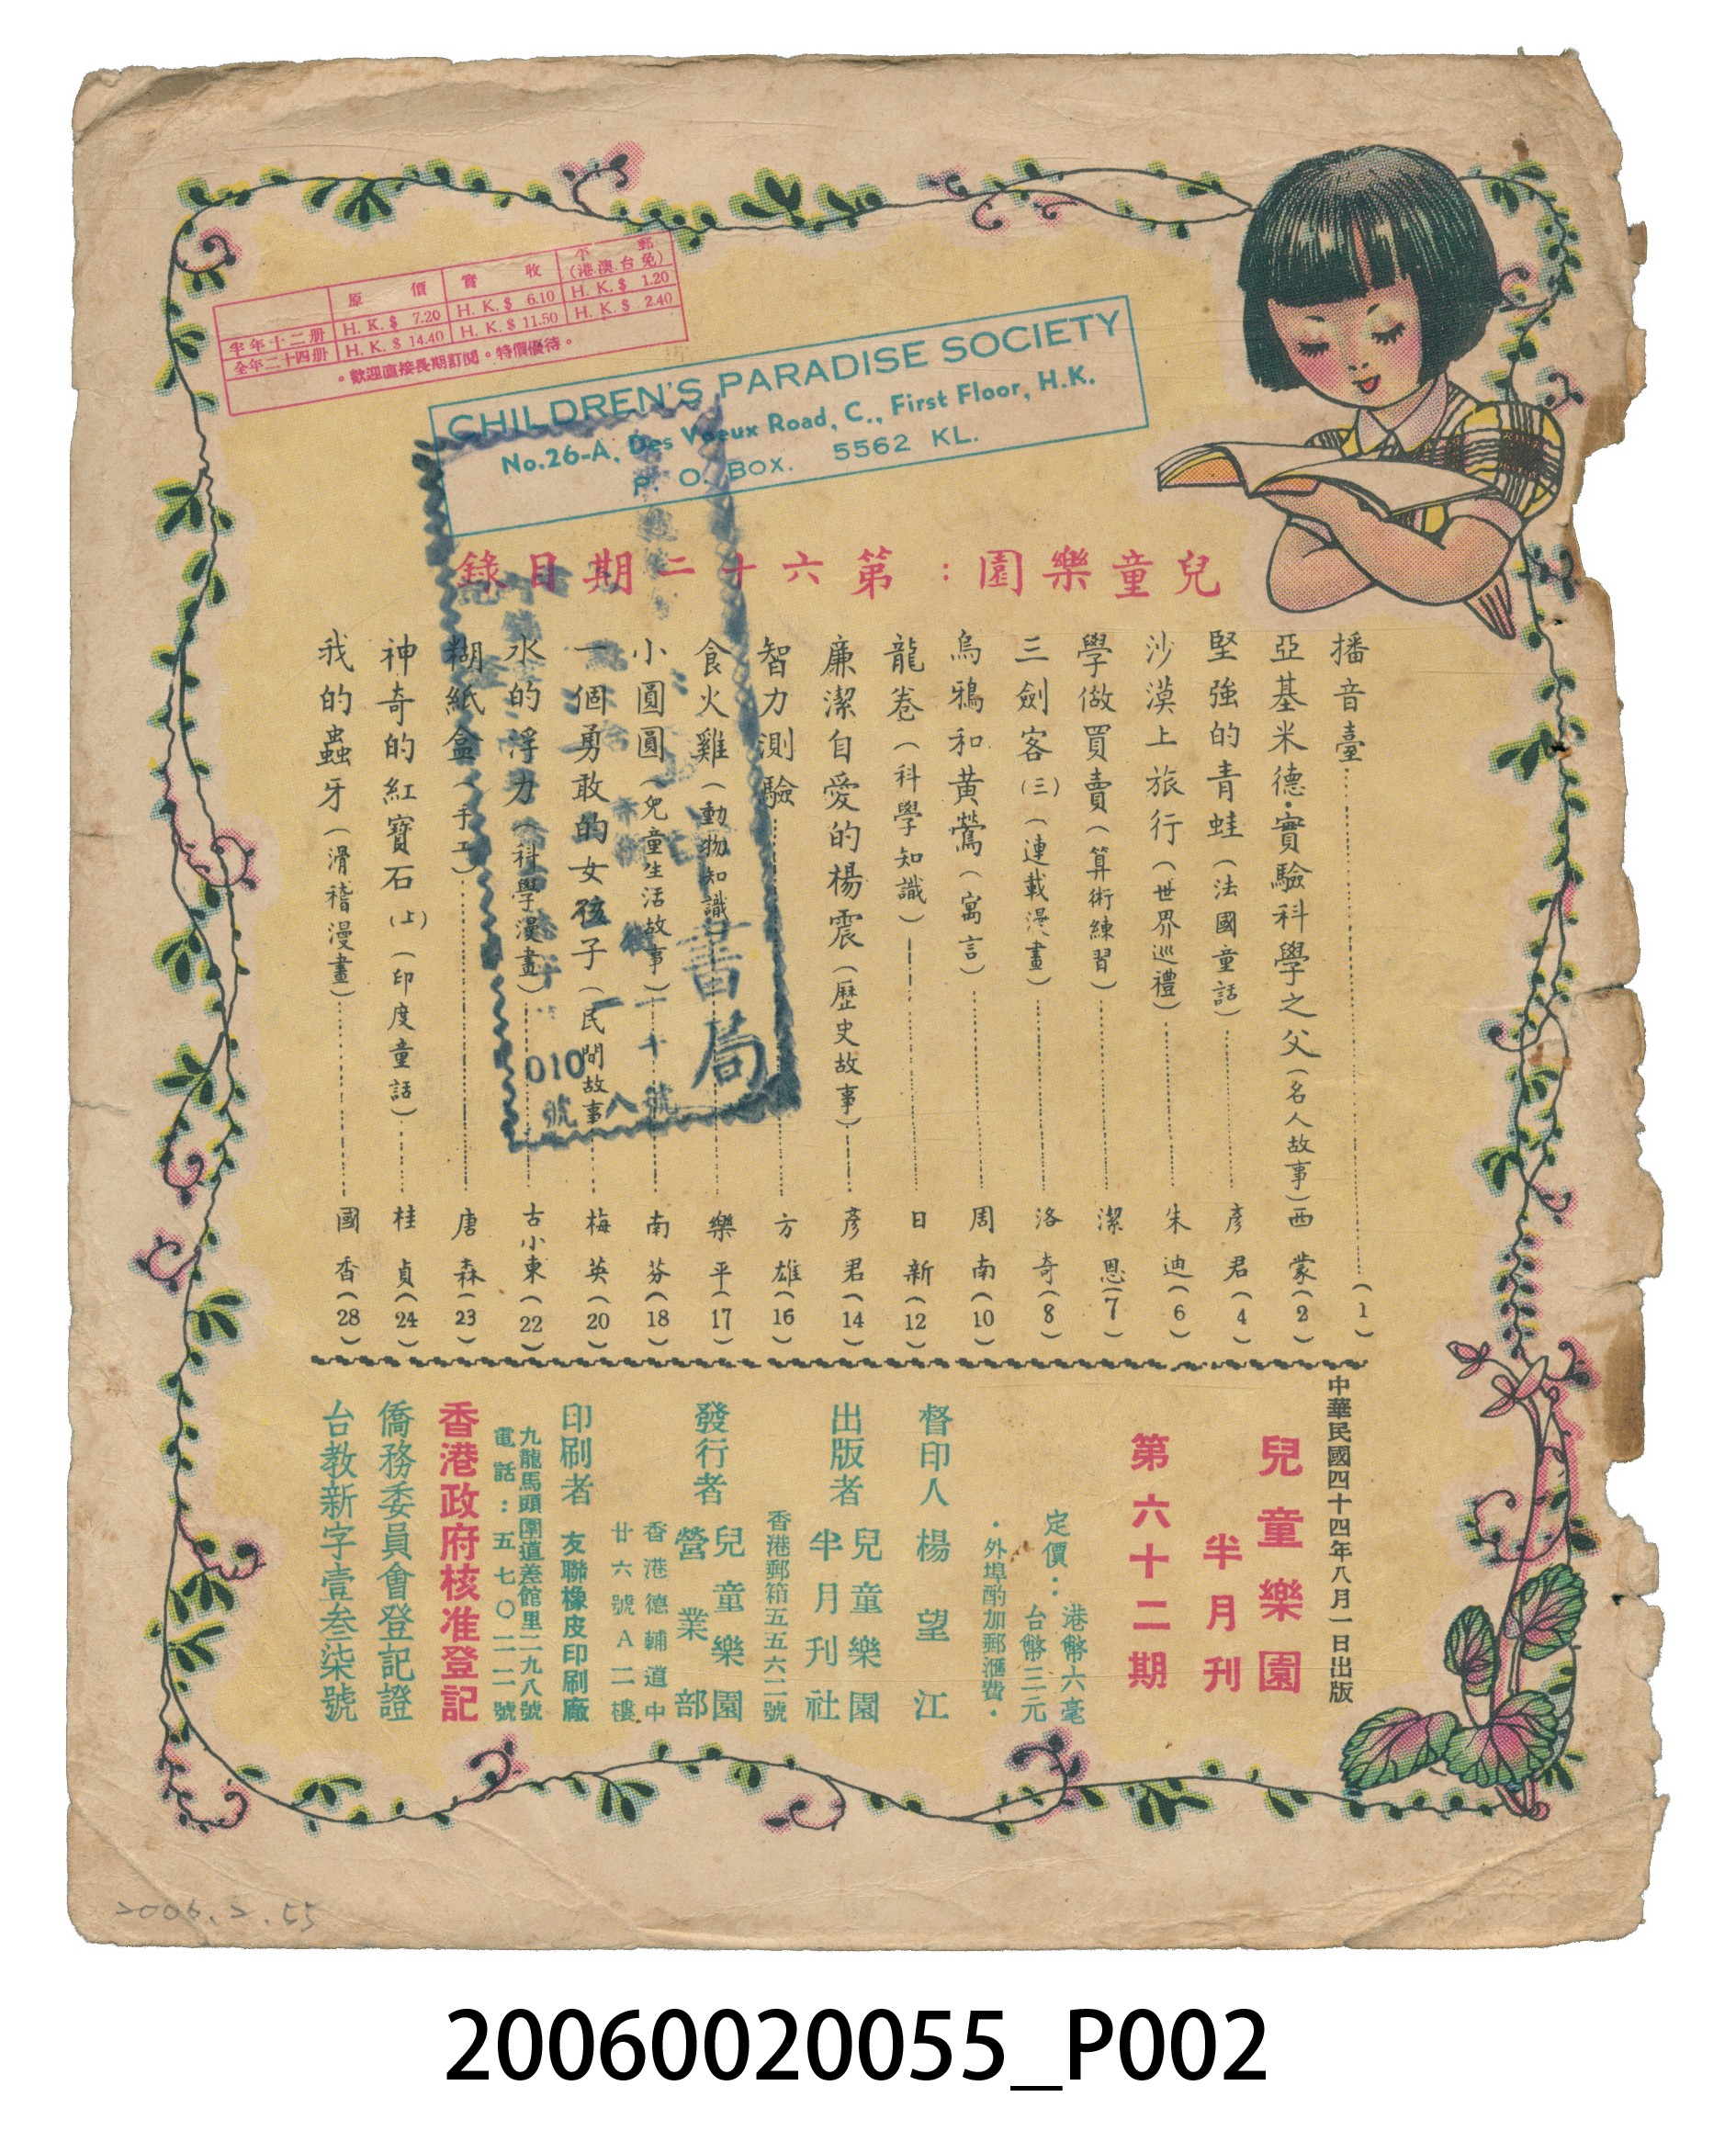 原價 實收 郵(港澳台免)不
半年十二册 H. K. $ 7.20 H. K. $ 6.10 H. K. $ 1.20
全年二十四册 H. K. $ 14.40 H. K. $ 11.50 H. K. $ 2.40
。歡迎直接長期訂閱。特價優待。
CHILDREN'S PARADISE SOCIETY
No.26-A, Des Voeux Road, C., First Floor, H.K.
P. O. Box. 5562 KL.
兒童樂園：第六十二期目錄
播音臺(1)
亞基米德·實驗科學之父(名人故事)西蒙(2)
堅強的青蛙(法國童話)彥君(4)
沙漠上旅行(世界巡禮)朱迪(6)
學做買賣(算術練習)潔恩(7)
三劍客(三)(連載漫畫)洛奇(8)
烏鴉和黃鶯(寓言)周南(10)
龍卷(科學知識)日新(12)
廉潔自愛的楊震(歷史故事)彥君(14)
智力測驗 方雄(16)
食火雞(動物知識)樂平(17)
小圓圓(兒童生活故事)南芬(18)
一個勇敢的女孩子(民間故事)梅英(20)
水的浮力(科學漫畫)古小東(22)
糊紙盒(手工)唐森(23)
神奇的紅寶石(上)(印度童話)桂貞(24)
我的蟲牙(滑稽漫畫)國香(28)
書局
010
號
中華民國四十四年八月一日出版
兒童樂園
半月刊
第六十二期
定價：港幣六毫
台幣三元
·外埠酌加郵滙費·
督印人 楊望江
出版者 兒童樂園
半月刊社
香港郵箱五五六二號
發行者 兒童樂園
營業部
香港德輔道中
廿六號A二樓
印刷者 友聯橡皮印刷廠
九龍馬頭圍道差館里二九八號
電話：五七〇二一一號
香港政府核准登記
僑務委員會登記證
台教新字壹叁柒號
2006.2.55
20060020055_P002